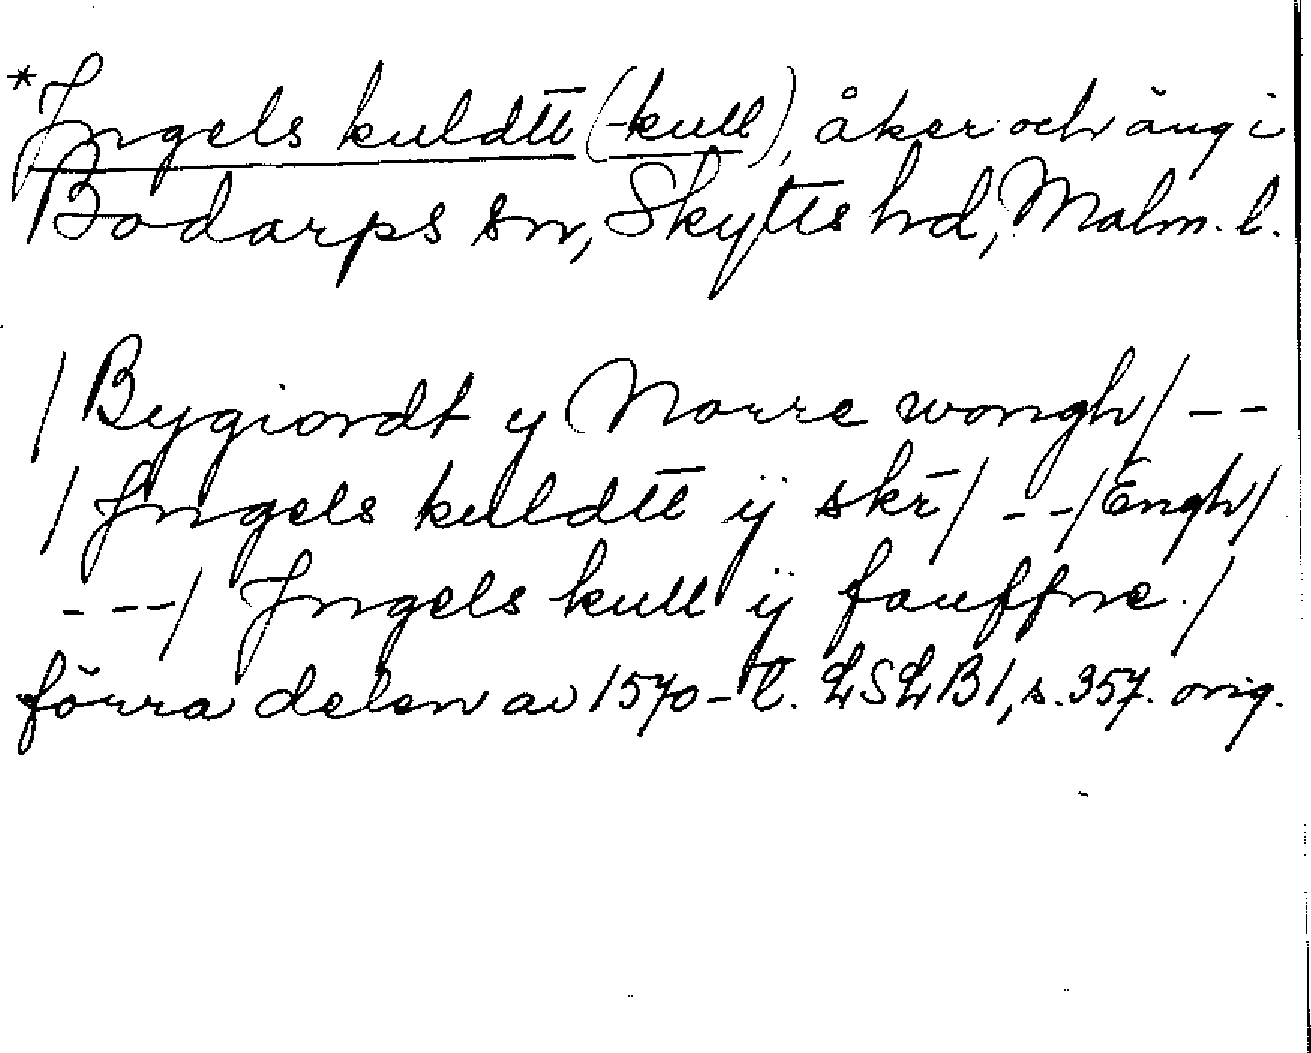 *Jngels kuldtt (-kull), åker och äng i
Bodarps sn, Skytts hd, Malm. l.
/ Bygiordt y Norre wongh / --
/ Jngels kuldtt ÿ skr̄ / -- / Engh /
--- / Jngels kull ÿ fauffne. /
förra delen av 1570-t. LSLB1, s. 357. orig.